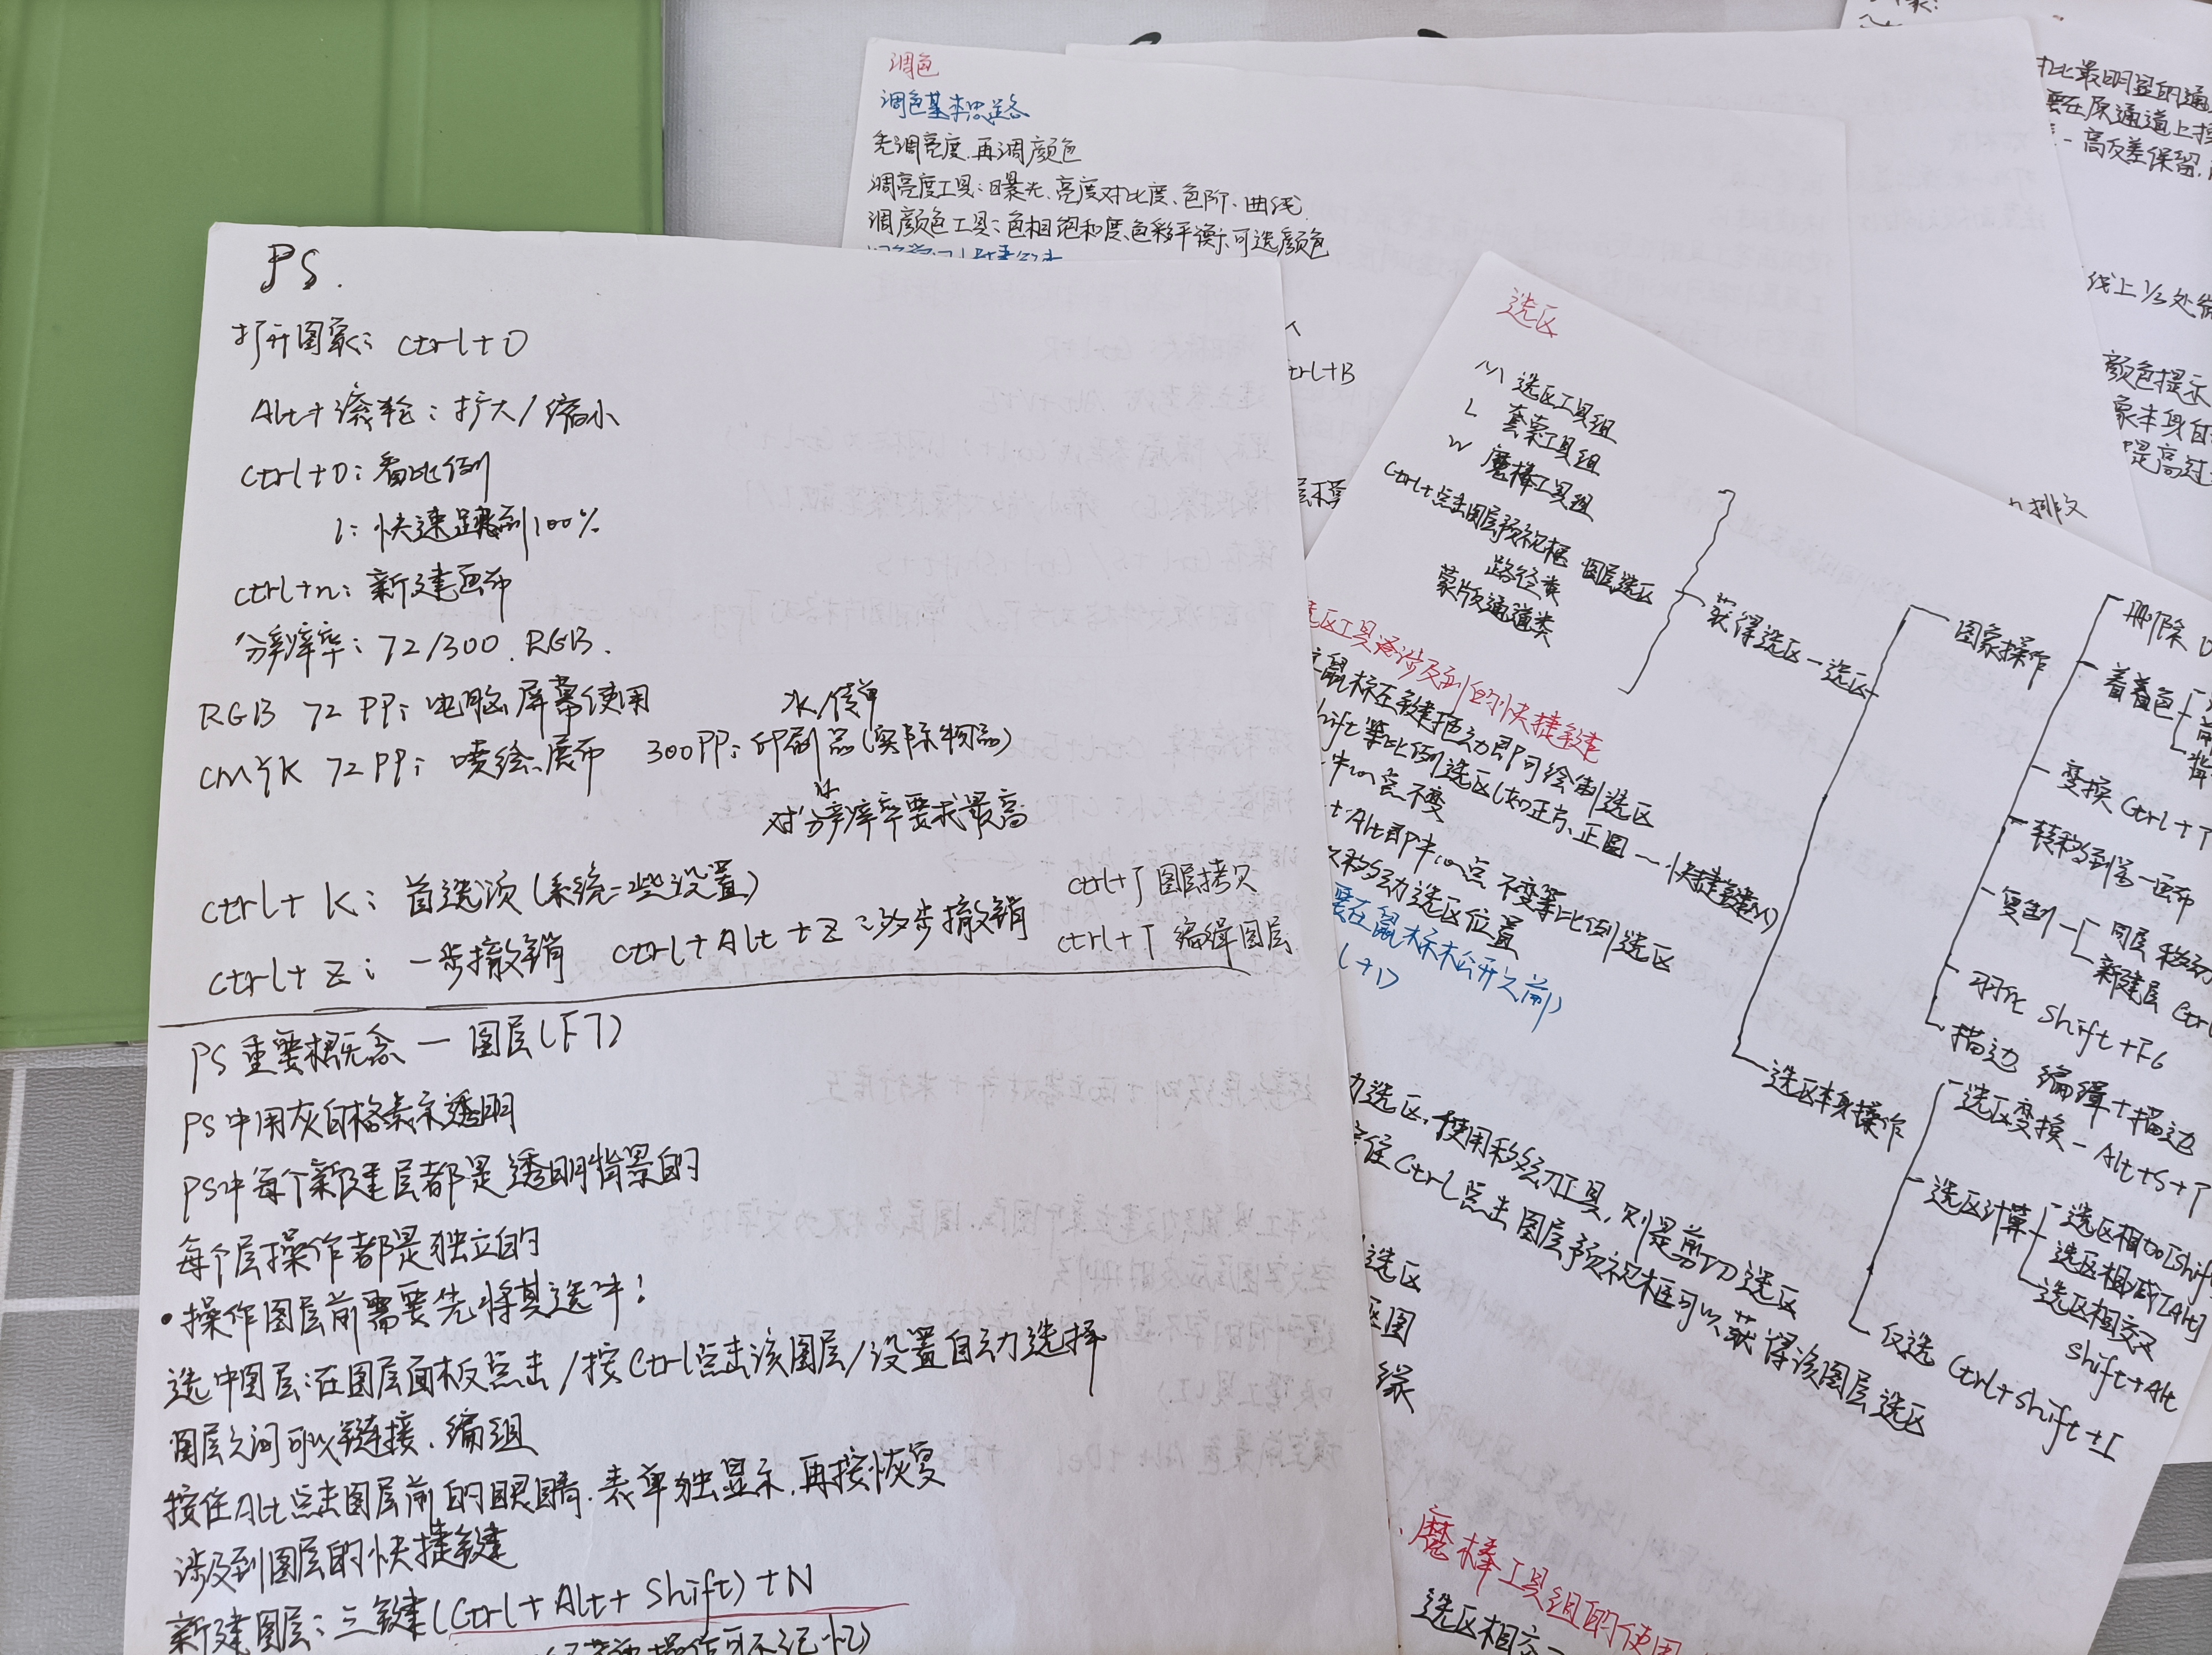 PS.
打开图象: ctrl+O
Alt+滚轮: 扩大/缩小
ctrl+0: 看比例
1: 快速跳到100%
ctrl+n: 新建画布
分辨率: 72/300. RGB.
RGB 72 PPi 电脑屏幕使用
水/传单
CMYK 72 PPi 喷绘、展布 300PPi 印刷品(实际物品)
对分辨率要求最高
ctrl+K: 首选项(系统一些设置)
ctrl+J 图层拷贝
ctrl+Z: 一步撤销 ctrl+Alt+Z:多步撤销 ctrl+T 编辑图层
PS重要概念 — 图层(F7)
PS中用灰白格表示透明
PS中每个新建层都是透明背景的
每个层操作都是独立的
• 操作图层前需要先将其选中!
选中图层:在图层面板点击/按Ctrl点击该图层/设置自动选择
图层之间可以链接、编组
按住Alt点击图层前的眼睛.表单独显示,再按恢复
涉及到图层的快捷键
新建图层:三键(Ctrl+Alt+Shift)+N
调色
调色基本思路
先调亮度.再调颜色
调亮度工具:曝光、亮度对比度、色阶、曲线
调颜色工具:色相饱和度、色彩平衡、可选颜色
trl+B
选区
M 选区工具组
L 套索工具组
W 魔棒工具组
Ctrl+点击图层预视框 图层选区
路径类
蒙版通道类
获得选区—选区
图象操作
删除 D
着色
变换 Ctrl+T
转移到另一画布
复制
同层 移动
新建层 Ctr
羽化 Shift+F6
描边 编辑+描边
选区本身操作
选区变换 - Alt+S+T
选区计算
选区相加[Shift
选区相减[Alt]
选区相交
Shift+Alt
反选 Ctrl+Shift+I
选区工具涉及到的快捷键
鼠标左键拖动即可绘制选区
hift 等比例选区(如正方、正圆 — 快捷键M)
中心点不变
+Alt即中心点不变等比例选区
移动选区位置
要在鼠标松开之前)
l+D
选区,使用移动工具,则是剪切选区
住Ctrl点击图层预视框可以获得该图层选区
选区
区图
缘
魔棒工具组的使用
选区相交一
对比最明显的通
要在原通道上操
- 高反差保留.
线上1/3处
颜色提示
象本身的
提高过
排文